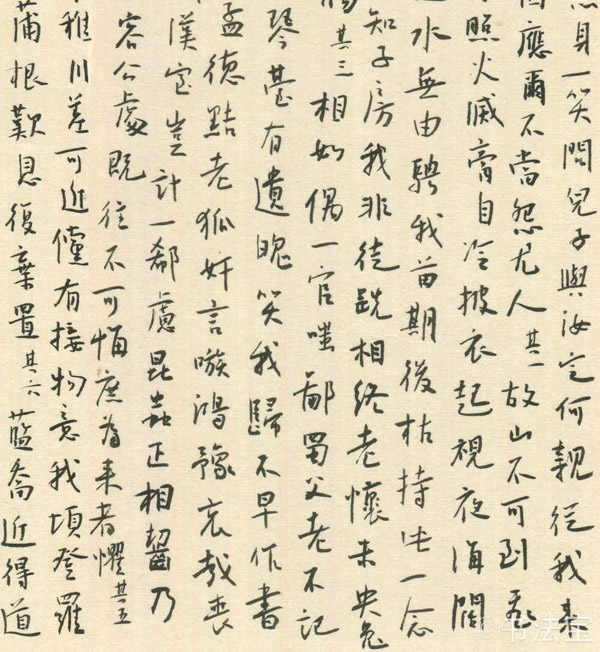 身一笑問兒子與汝定何親從我來
應爾不當怨尤人其一故山不可到飛
照火滅膏自冷披衣起視夜海闊
水無由騁我苗期後枯持此一念
知子房我非徒跣相終老懷未央兔
其三相如偶一官嗤鄙蜀父老不記
琴臺有遺魄笑我歸不早作書
孟德黠老狐奸言嗾鴻豫哀哉喪
漢室豈計一郗慮昆蟲正相齧乃
容公處既往不可悔庶為來者懼其五
稚川差可近儻有接物意我頃登羅
蒲根歎息復棄置其六藍喬近得道
书法宝